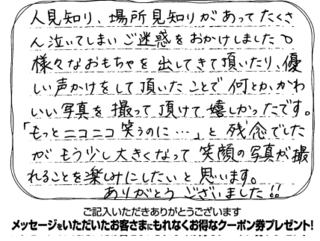 人見知り、場所見知りがあってたくさ
ん泣いてしまいご迷惑をおかけしました
様々なおもちゃを出してきて頂いたり、優
しい声かけをして頂いたことで何とか、かわ
いい写真を撮って頂けて嬉しかったです。
「もっとニコニコ笑うのに…」と残念でした
がもう少し大きくなって笑顔の写真が撮
れることを楽しみにしたいと思います。
ありがとうございました!!
ご記入いただきありがとうございます
メッセージをいただいたお客さまにもれなくお得なクーポン券プレゼント!